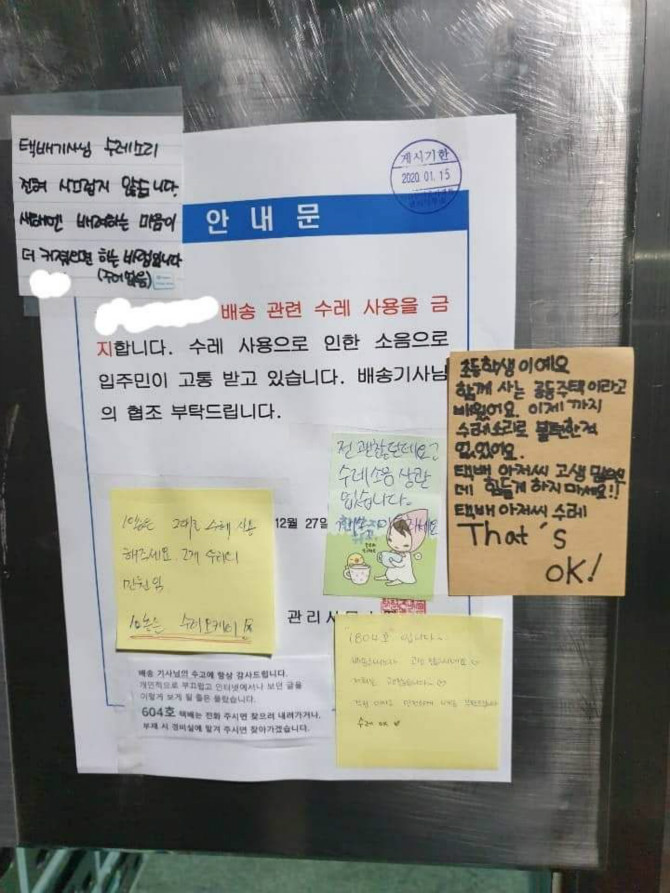 택배기사님 수레소리
전혀 시끄럽지 않습니다.
새해엔 배려하는 마음이
더 커졌으면 하는 바램입니다
게시기한
2020. 01. 15
안 내 문
배송 관련 수레 사용을 금
지합니다. 수레 사용으로 인한 소음으로
입주민이 고통 받고 있습니다. 배송기사님
의 협조 부탁드립니다.
초등학생이예요
함께 사는 공동주택이라고
배웠어요. 이제까지
수레소리로 불편한적
없었어요.
택배 아저씨 고생 많으
데 힘들게 하지마세요!!
택배 아저씨 수레
That's
OK!
전 괜찮은데요?
수레소음 상관
없습니다.
12월 27일
수레 사용
해주세요.
관리사무소
배송 기사님의 수고에 항상 감사드립니다.
개인적으로 부끄럽고 인터넷에서나 보던 글을
이렇게 보게 될 줄은 몰랐습니다.
604호 택배는 전화 주시면 찾으러 내려가거나,
부재 시 경비실에 맡겨 주시면 찾아가겠습니다.
1804호 입니다.